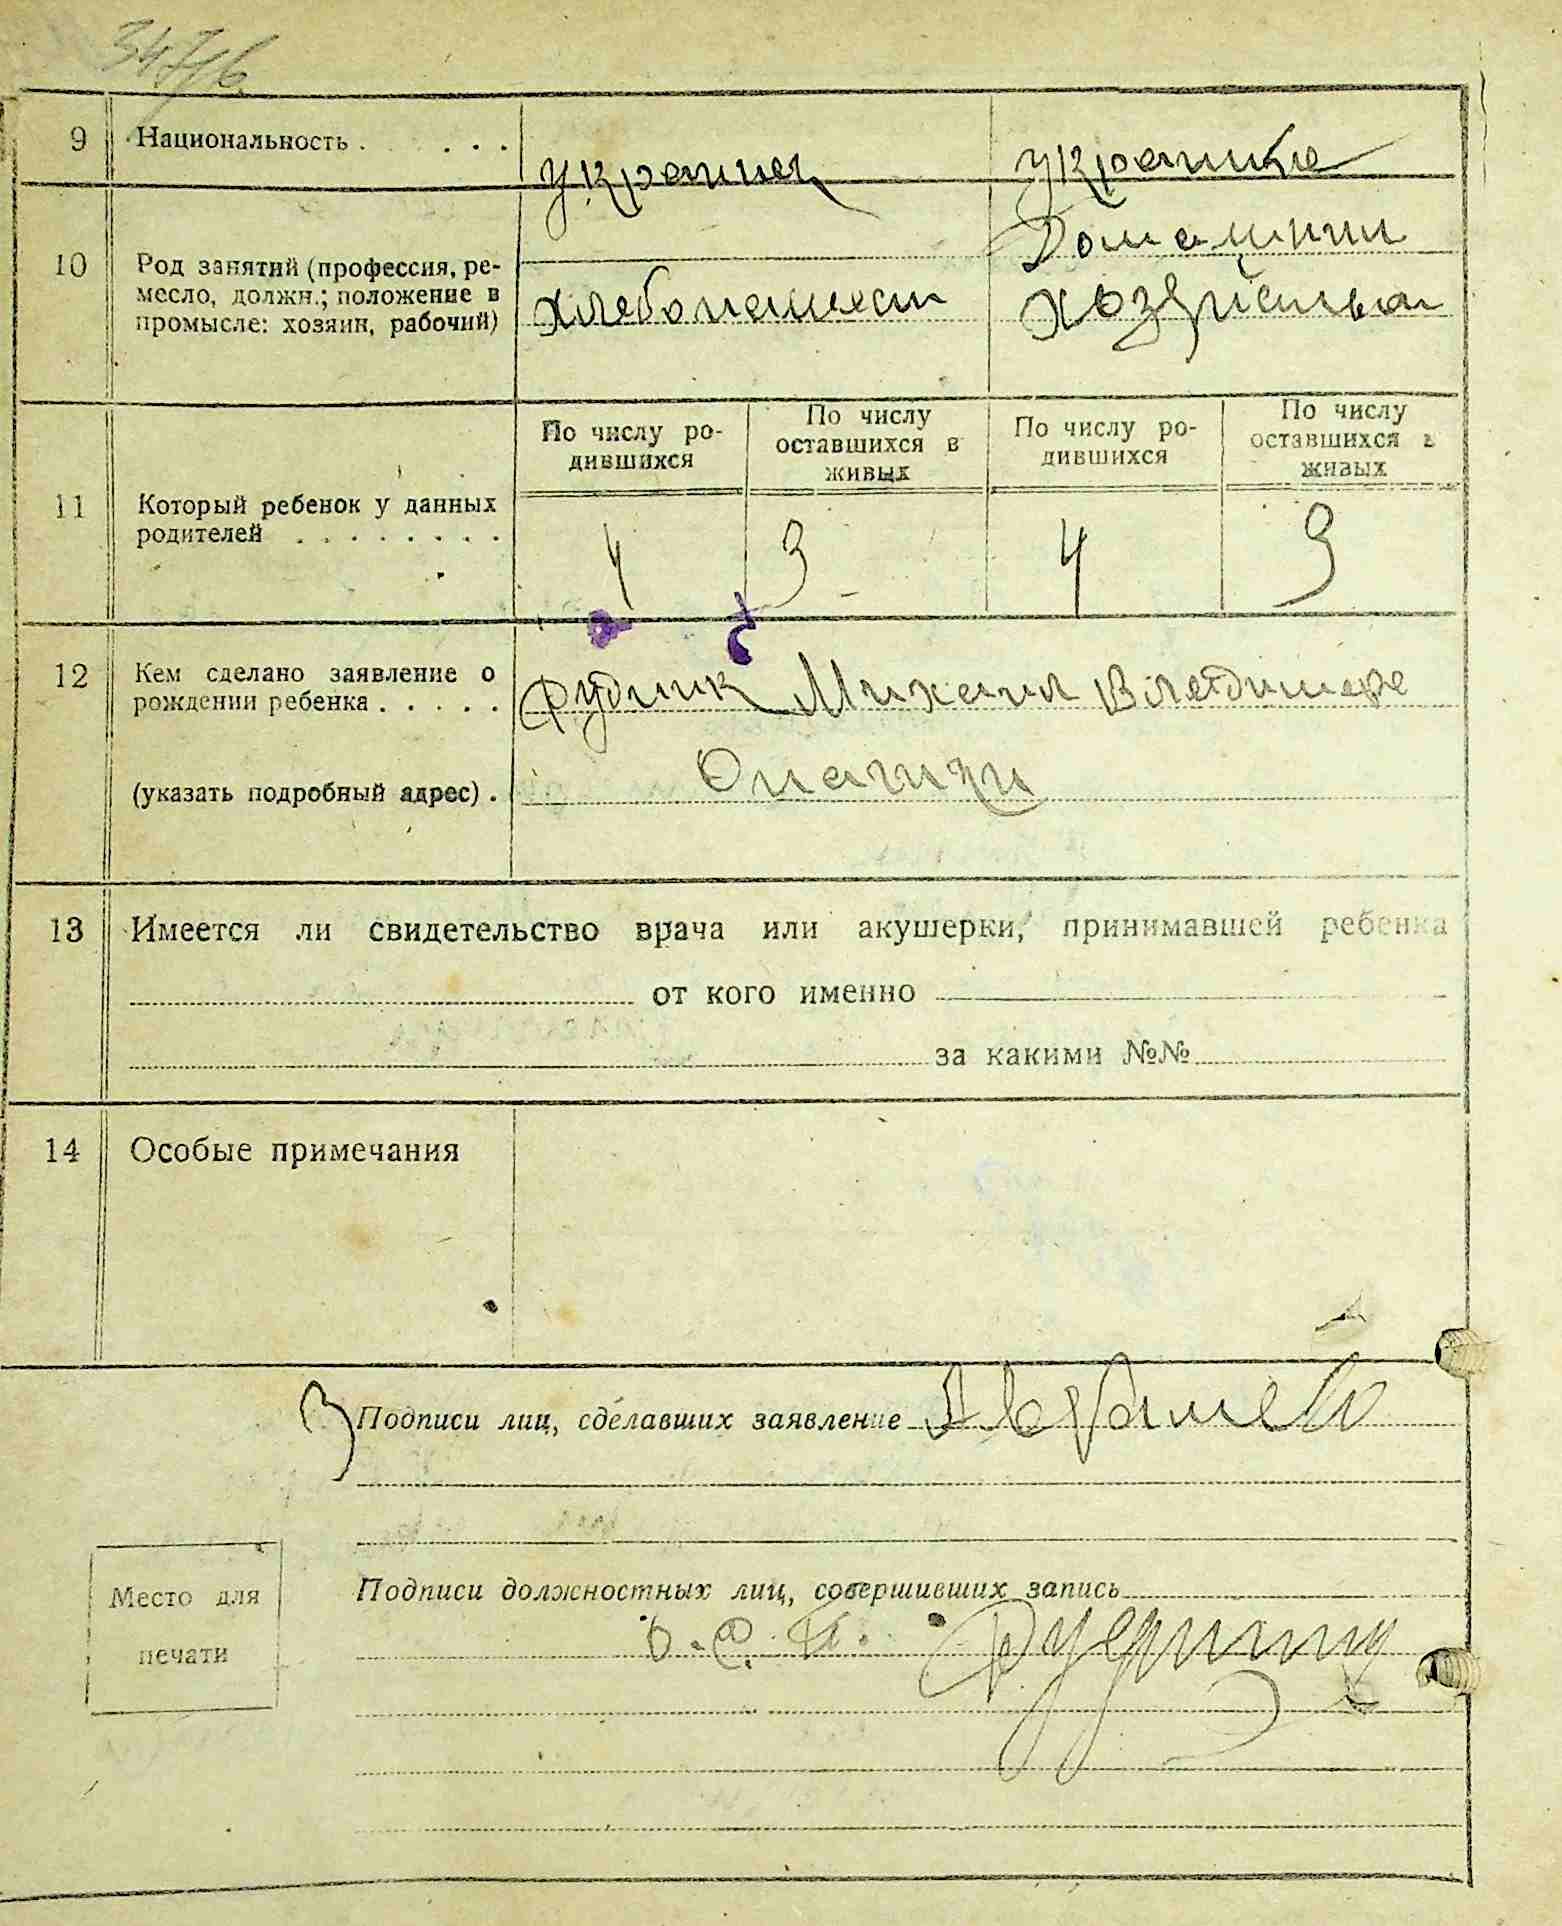 9 Национальность . . . . . украинец украинка
10 Род занятий (профессия, ре-
месло, должн.; положение в
промысле: хозяин, рабочий)
хлебопашест
Домашни
хозяйства
По числу ро-
дившихся
По числу
оставшихся в
живых
По числу ро-
дившихся
По числу
оставшихся в
живых
11 Который ребенок у данных
родителей . . . . . . . .
4 3 4 3
12 Кем сделано заявление о
рождении ребенка . . . . .
Рудник Михаил Владимире
(указать подробный адрес) .
13 Имеется ли свидетельство врача или акушерки, принимавшей ребенка
от кого именно
за какими №№
14 Особые примечания
Подписи лиц, сделавших заявление
Место для
печати
Подписи должностных лиц, совершивших запись